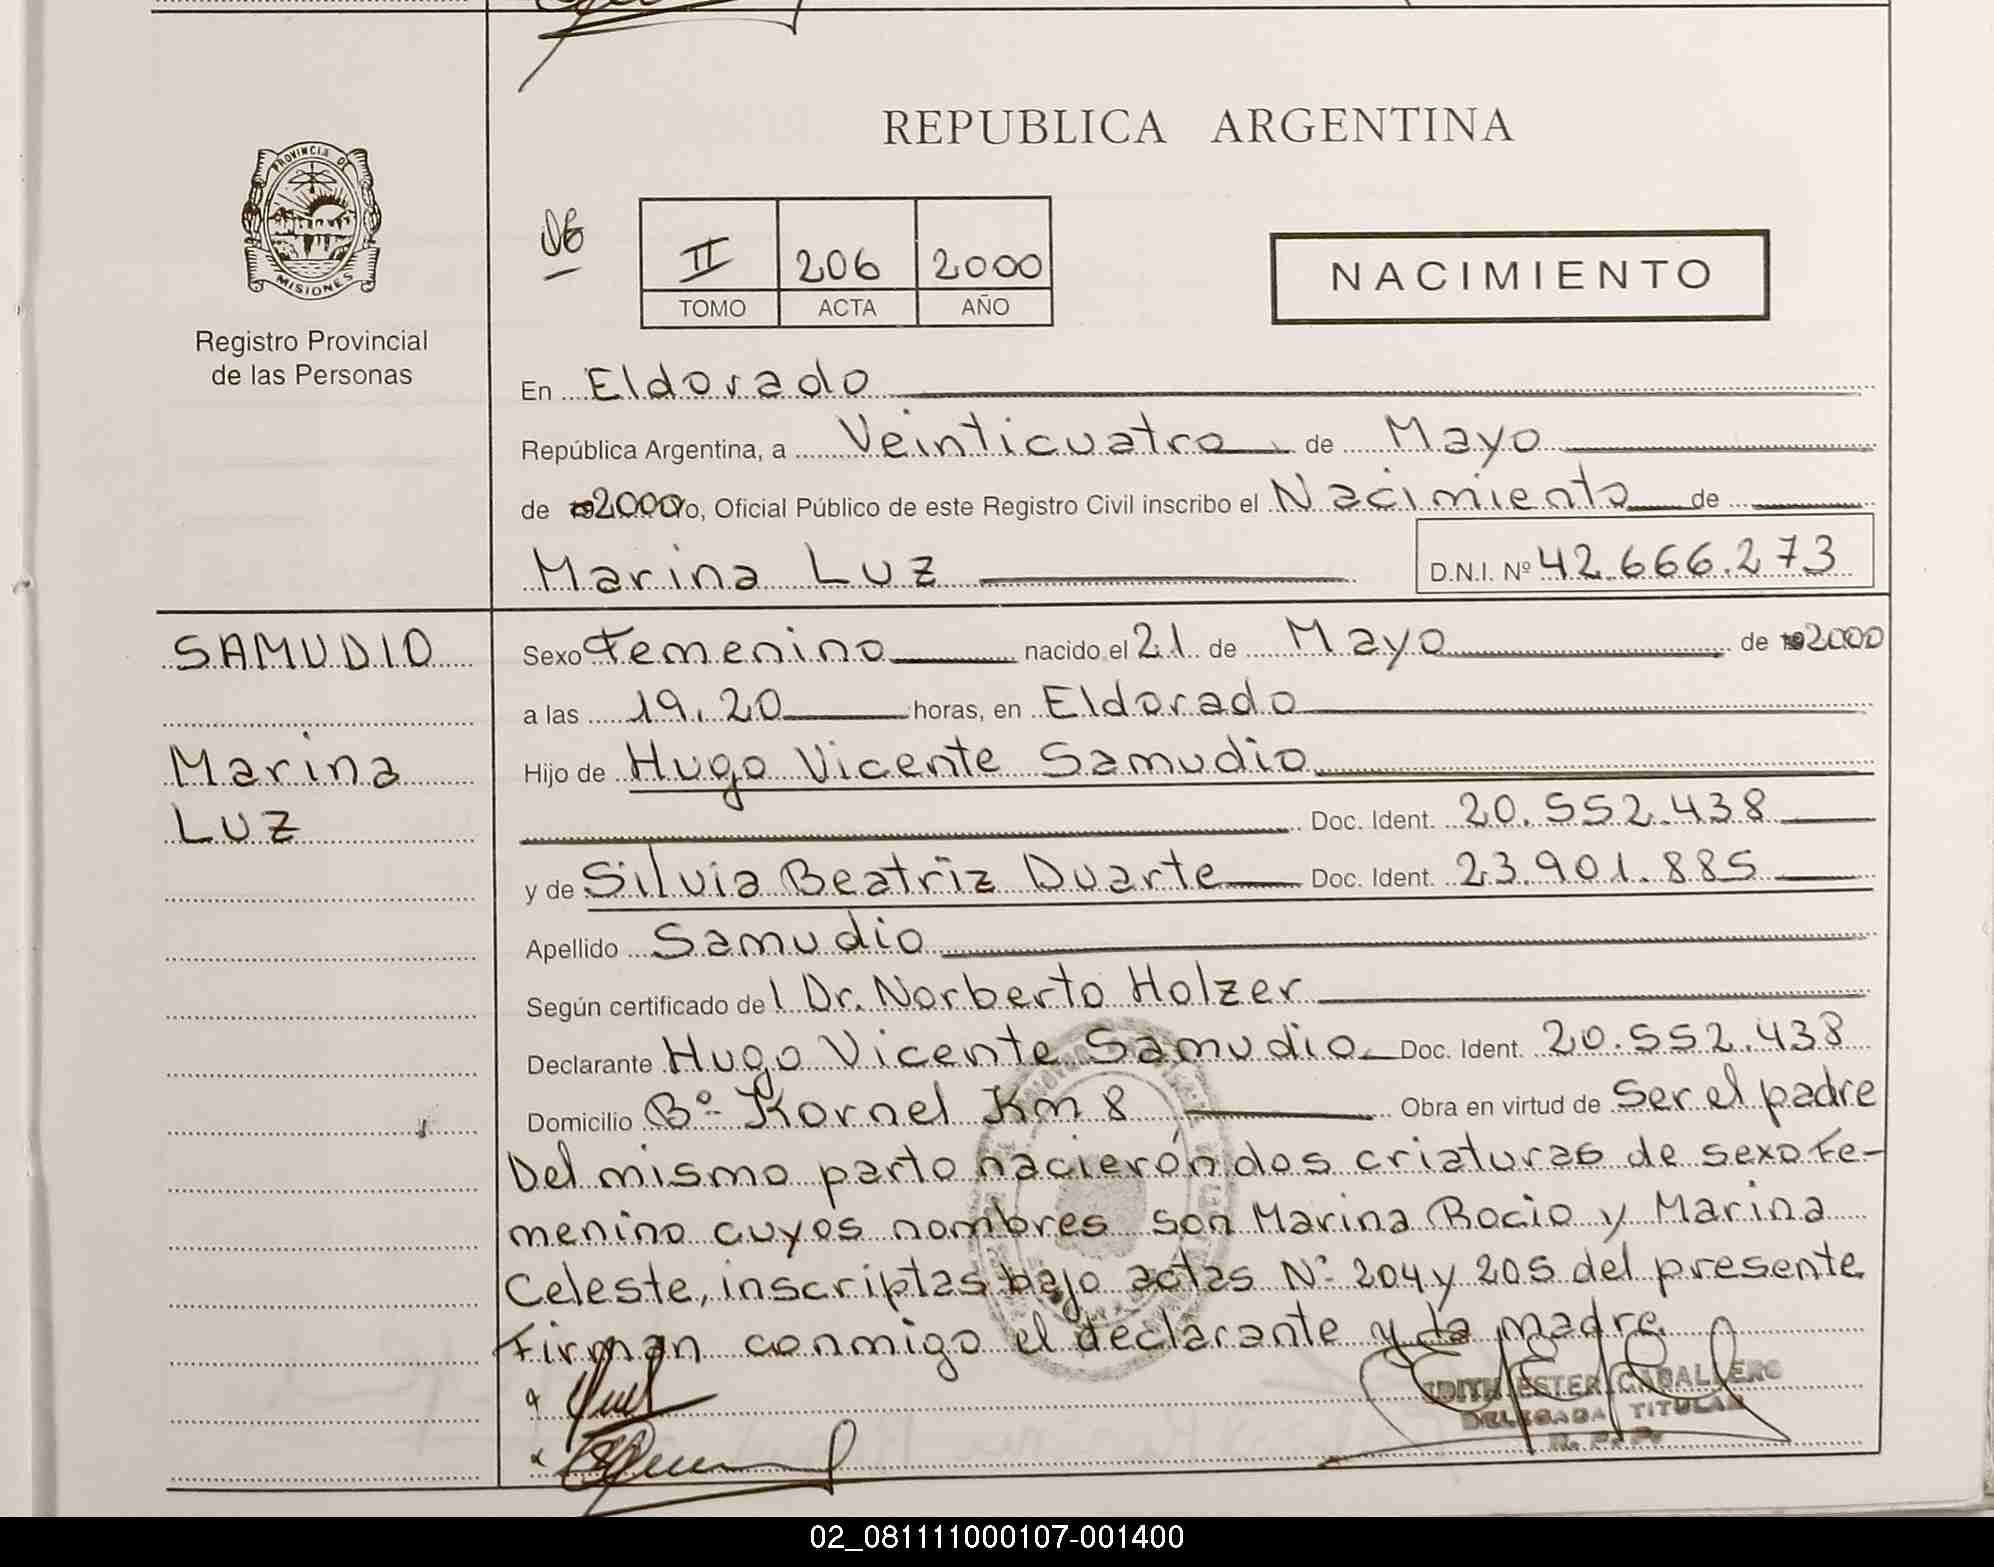 REPUBLICA ARGENTINA
PROVINCIA DE
MISIONES
Registro Provincial
de las Personas
II 206 2000
TOMO ACTA AÑO
NACIMIENTO
En Eldorado
República Argentina, a Veinticuatro de Mayo
de 2000 yo, Oficial Público de este Registro Civil inscribo el Nacimiento de
Marina Luz D.N.I. Nº 42.666.273
SAMUDIO
Marina
Luz
Sexo Femenino nacido el 21 de Mayo de 2000
a las 19.20 horas, en Eldorado
Hijo de Hugo Vicente Samudio
Doc. Ident. 20.552.438
y de Silvia Beatriz Duarte Doc. Ident. 23.901.885
Apellido Samudio
Según certificado del Dr. Norberto Holzer
Declarante Hugo Vicente Samudio Doc. Ident. 20.552.438
Domicilio Bº Kornel Km 8 Obra en virtud de Ser el padre
Del mismo parto nacierón dos criaturas de sexo Fe-
menino cuyos nombres son Marina Rocio y Marina
Celeste, inscriptas bajo actas Nº 204 y 205 del presente
Firman conmigo el declarante y la madre
EDITH ESTER CABALLERO
DELEGADA TITULAR
R. P. P.
02_081111000107-001400